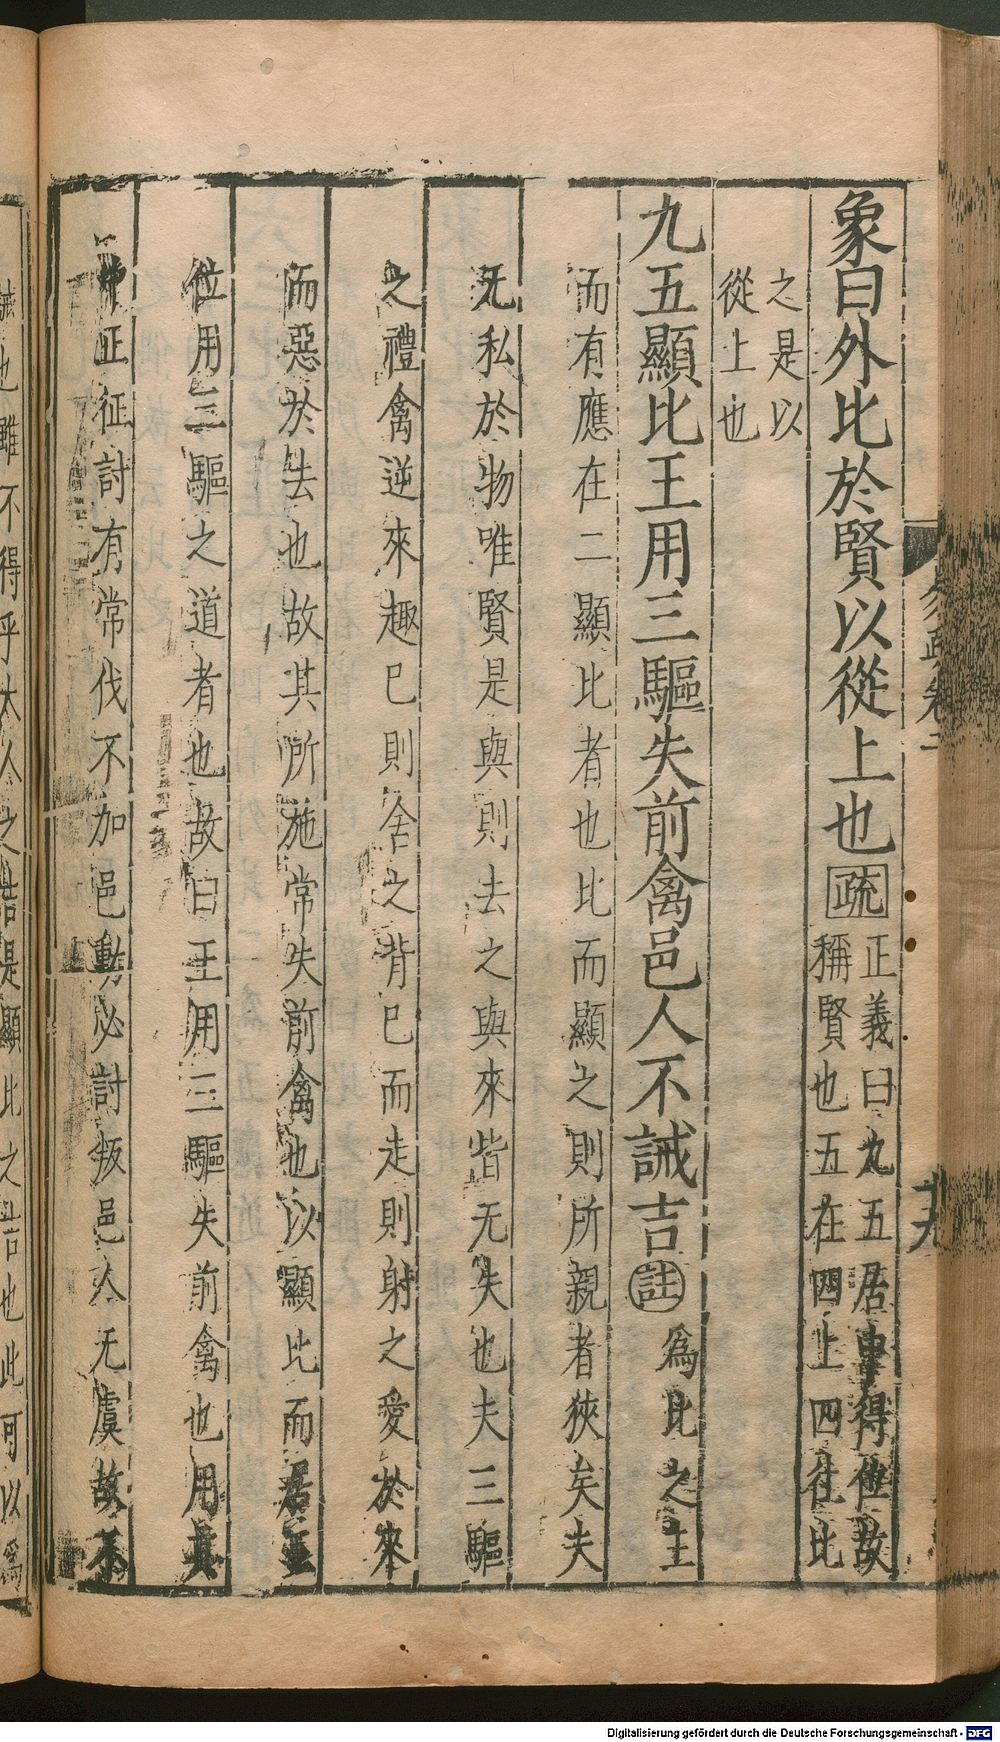 象曰外比於賢以從上也疏正義曰九五居中得位故
稱賢也五在四上四往比
之是以
從上也
九五顯比王用三驅失前禽邑人不誡吉註為比之主
而有應在二顯比者也比而顯之則所親者狹矣夫
无私於物唯賢是與則去之與來皆无失也夫三驅
之禮禽逆來趣已則舍之背已而走則射之愛於來
而惡於去也故其所施常失前禽也以顯比而居王
位用三驅之道者也故曰王用三驅失前禽也用其
中正征討有常伐不加邑動必討叛邑人无虞故不
誡也雖不得乎大人之吉是顯比之吉也此可以為
Digitalisierung gefördert durch die Deutsche Forschungsgemeinschaft - DFG